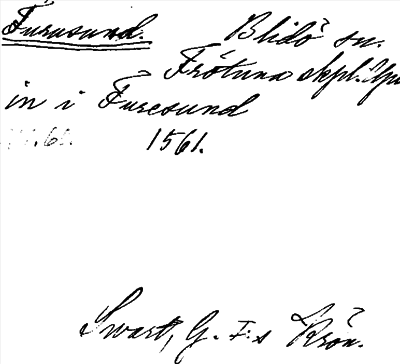 Furusund. Blidö sn.
Frötuna skpl. Upl
in i Furesund
1561.
Swart, G. I:s Krön.